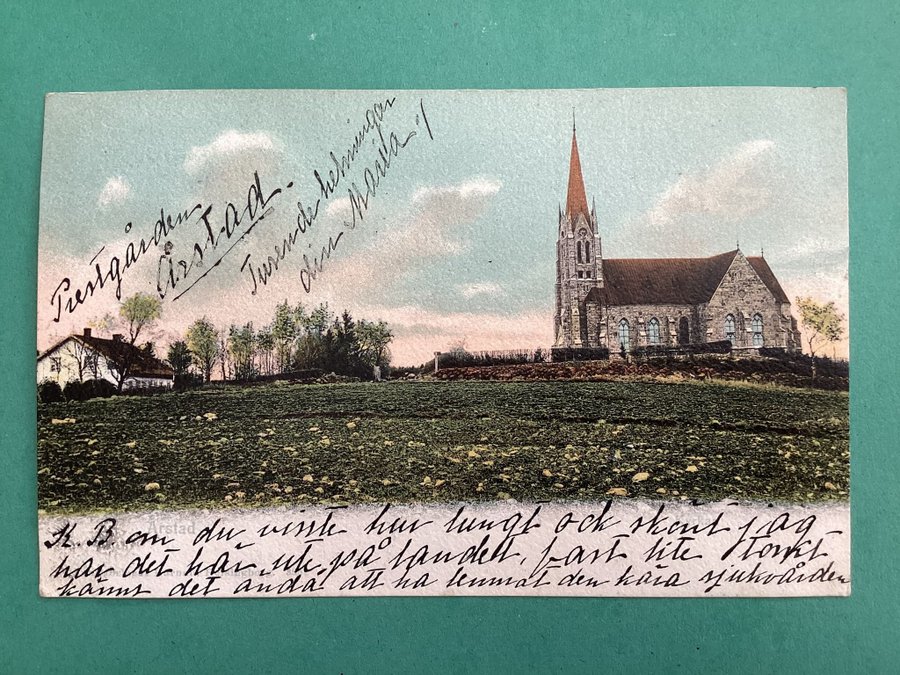 Prestgården
Årstad.
Tusende helsningar
din Maria
Årstad
K. B om du visste hur lungt ock skönt jag
har det här ute på landet, fast lite
känns det ändå att ha lemnat den kära sjukvården